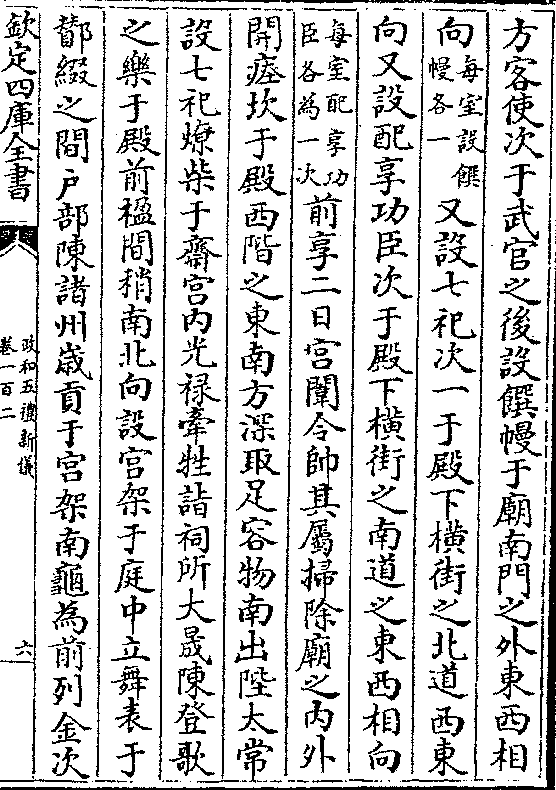 方客使次于武官之後設饌幔于廟南門之外東西相
向每室設饌幔各一又設七祀次一于殿下橫街之北道西東
向又設配享功臣次于殿下橫街之南道之東西相向
每室配享功臣各為一次前享二日宮闈令帥其屬掃除廟之内外
開瘞坎于殿西階之東南方深取足容物南出陛太常
設七祀燎柴于齋宮内光禄牽牲詣祠所大晟陳登歌
之樂于殿前楹間稍南北向設宫架于庭中立舞表于
酇綴之間户部陳諸州歲貢于宫架南龜為前列金次
欽定四庫全書
政和五禮新儀
卷一百二
六